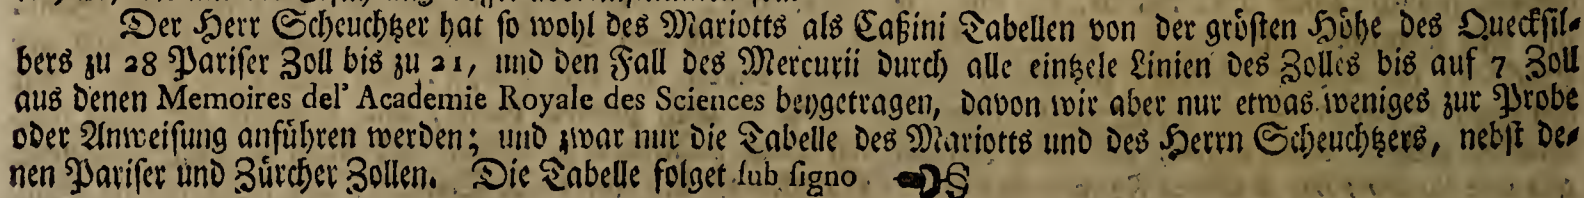 Der Herr Scheuchzer hat so wohl des Mariotts als Caßini Tabellen von der grösten Höhe des Quecksil-
bers zu 28 Pariser Zoll bis zu 21, und den Fall des Mercurii durch alle eintzele Linien des Zolles bis auf 7 Zoll
aus denen Memoires del' Academie Royale des Sciences beygetragen, davon wir aber nur etwas weniges zur Probe
oder Anweisung anführen werden; und zwar nur die Tabelle des Mariotts und des Herrn Scheuchzers, nebst de-
nen Pariser und Zürcher Zollen. Die Tabelle folget sub signo